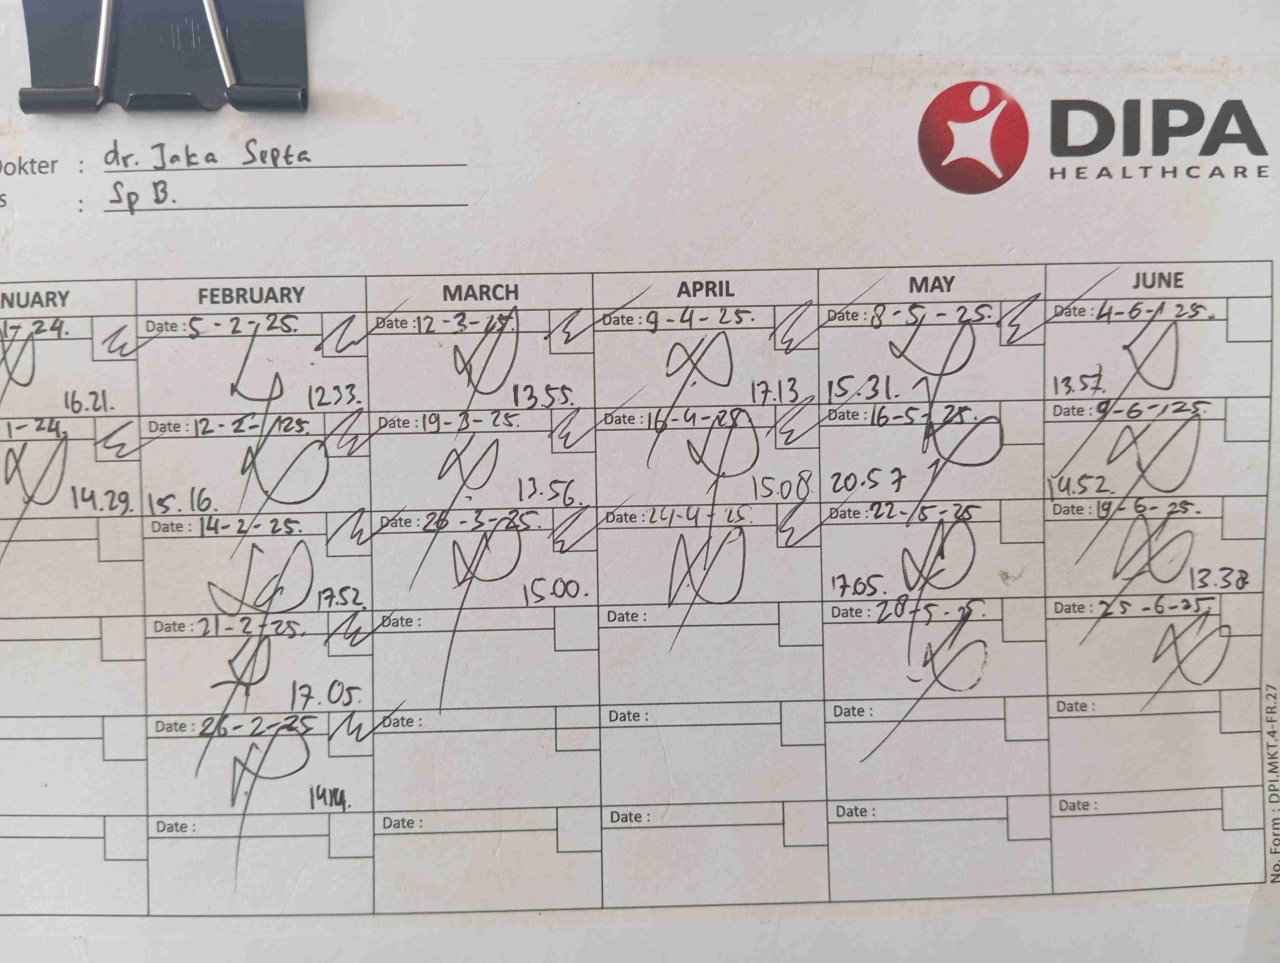 DIPA
HEALTHCARE
okter : dr. Jaka Septa
s : Sp B.
NUARY FEBRUARY MARCH APRIL MAY JUNE
1-24. Date : 5-2-25. Date : 12-3-25. Date : 9-4-25. Date : 8-5-25. Date : 4-6-25.
16.21. 1233. 13.55. 17.13 15.31. 13.57.
1-24. Date : 12-2-25. Date : 19-3-25. Date : 16-4-25 Date : 16-5-25. Date : 9-6-25.
14.29. 15.16. 13.56. 15.08 20.57 14.52.
Date : 14-2-25. Date : 26-3-25. Date : 24-4-25. Date : 22-5-25 Date : 19-6-25.
17.52. 15.00. 17.05. 13.38
Date : 21-2-25. Date : Date : Date : 28-5-25. Date : 25-6-25.
17.05.
Date : 26-2-25 Date : Date : Date : Date :
Date : Date : Date : Date : Date :
No. Form : DPI.MKT.4-FR.27